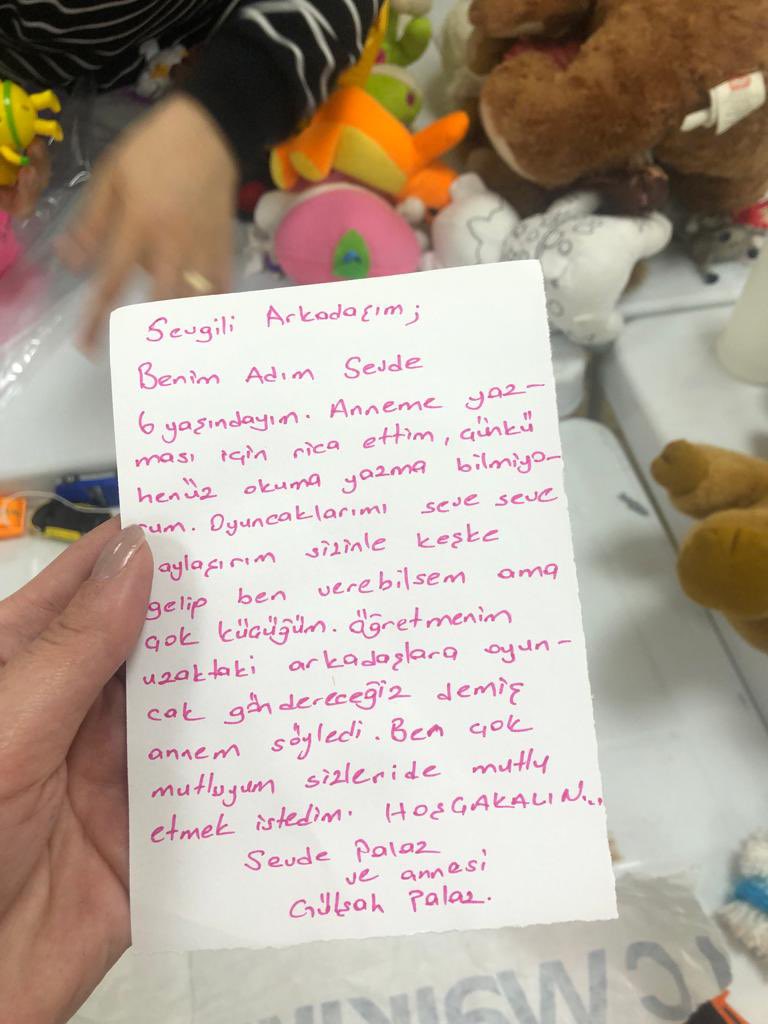 Sevgili Arkadaşım;
Benim Adım Sevde
6 yaşındayım. Anneme yaz-
ması için rica ettim, çünkü
henüz okuma yazma bilmiyo-
rum. Oyuncaklarımı seve seve
aylaşırım sizinle keşke
gelip ben verebilsem ama
çok küçüğüm. öğretmenim
uzaktaki arkadaşlara oyun-
cak göndereceğiz demiş
annem söyledi. Ben çok
mutluyum sizleride mutlu
etmek istedim. HOŞÇAKALIN...
Sevde Palaz
ve annesi
Gülşah Palaz.